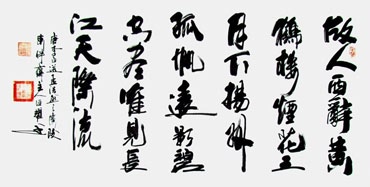 故人西辭黃
鶴樓煙花三
月下揚州
孤帆遠影碧
空盡唯見長
江天際流
唐李白送孟浩然之廣陵